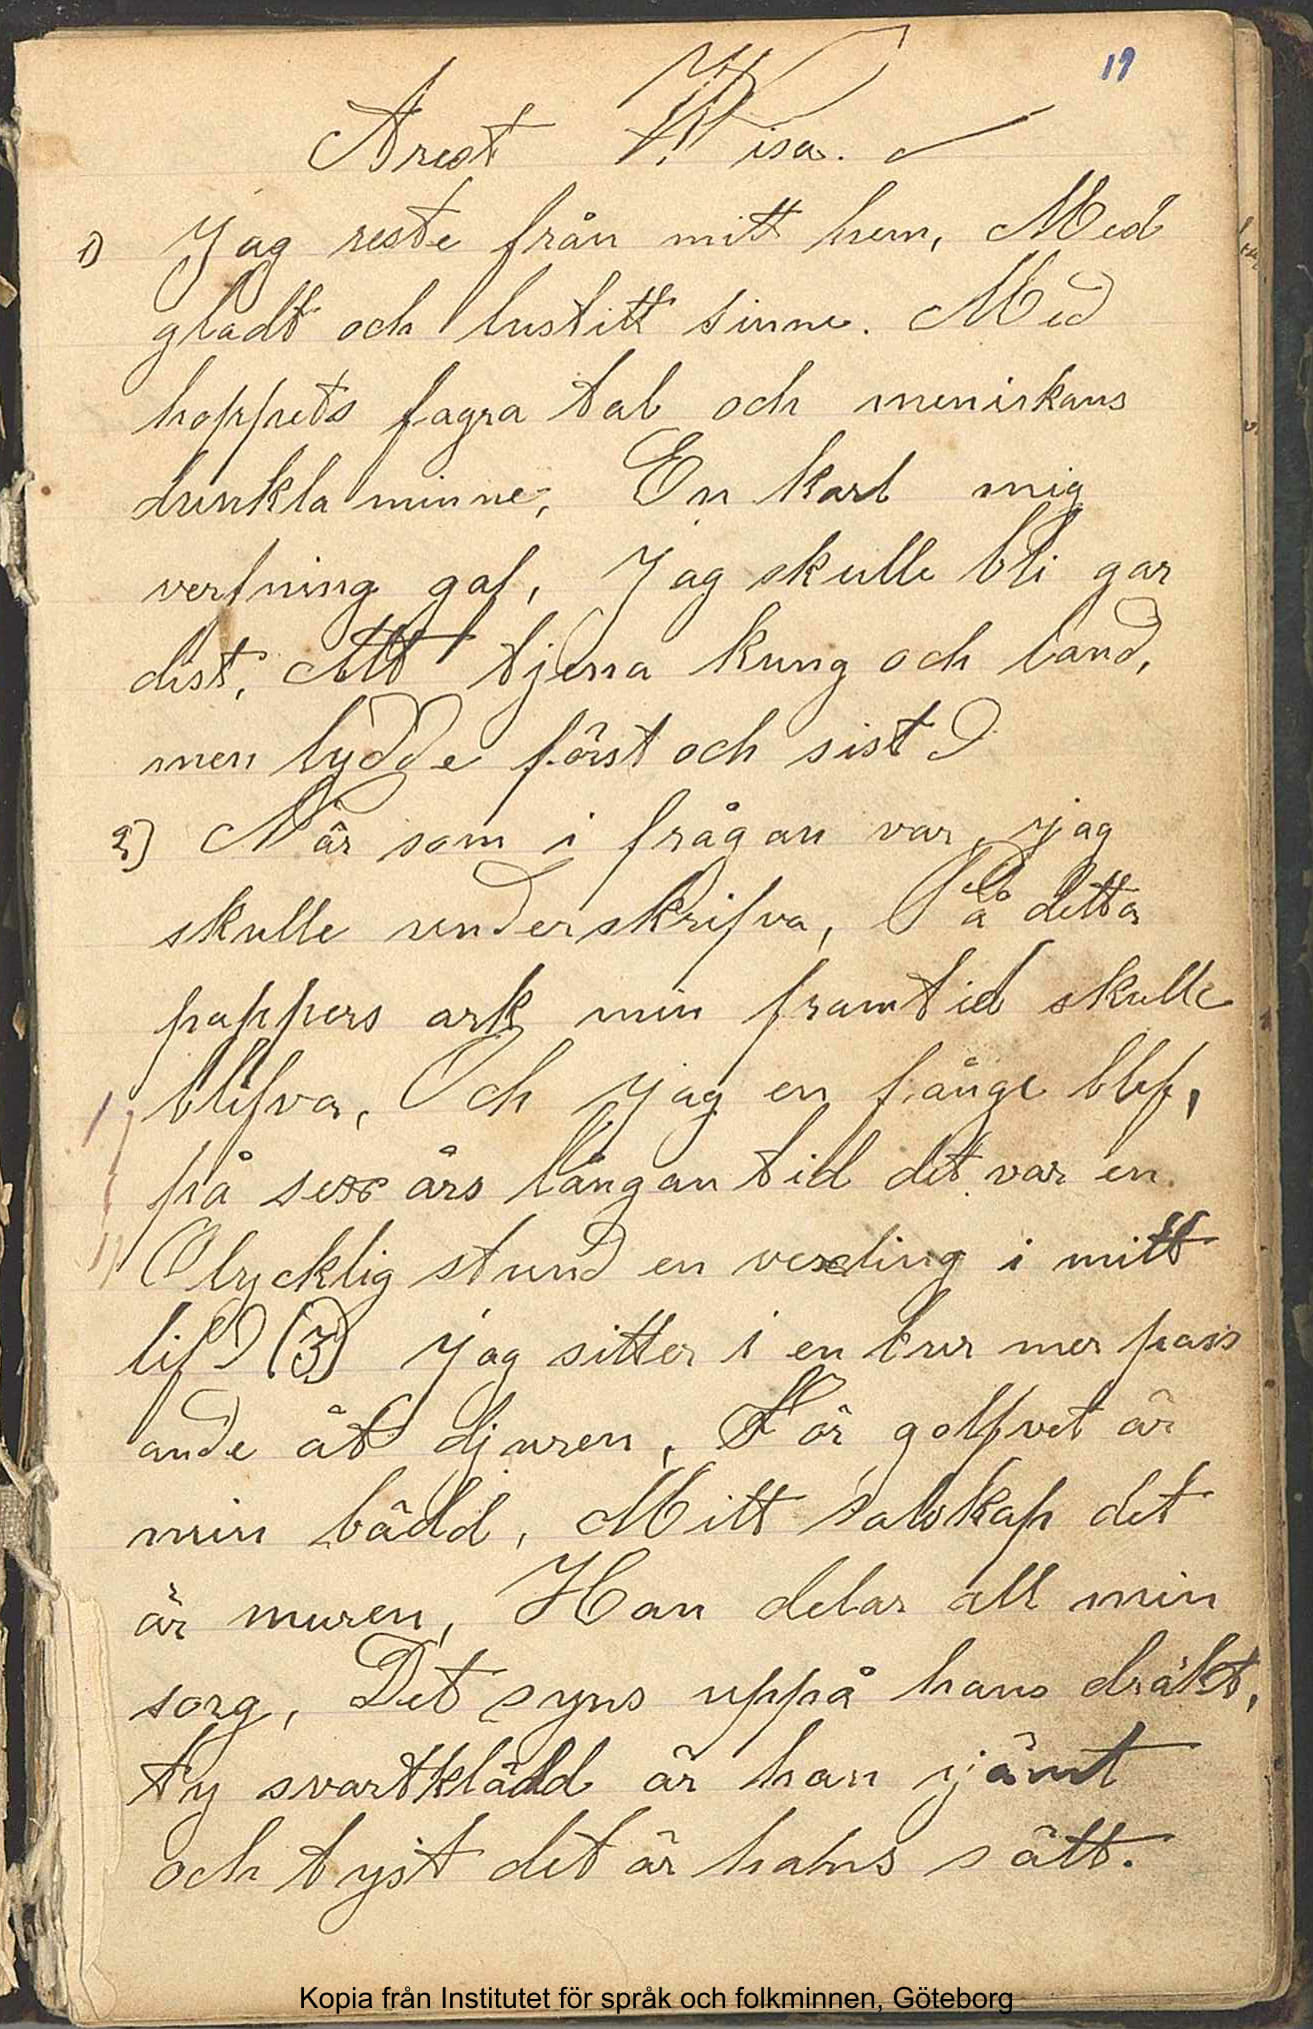 19
Arest Wisa.
1) Jag reste från mitt hem, Med
gladt och lustitt sinne. Med
hoppets fagra tal och meniskans
dunkla minne, En karl mig
verfning gaf, Jag skulle bli gar
dist, Att tjena kung och land,
men lydde först och sist
2) När som i frågan var, jag
skulle underskrifva, På detta
pappers ark min framtid skulle
blifva, Och jag en fånge blef,
på sex års långan tid det var en
Olycklig stund en vexling i mitt
lif (3) jag sitter i en bur mer pass
ande åt djuren, För golfvet är
min bädd, Mitt salskap det
är muren, Han delar all min
sorg, Det syns uppå hans dräkt,
ty svartklädd är han jämt
och tyst det är hans sätt.
Kopia från Institutet för språk och folkminnen, Göteborg